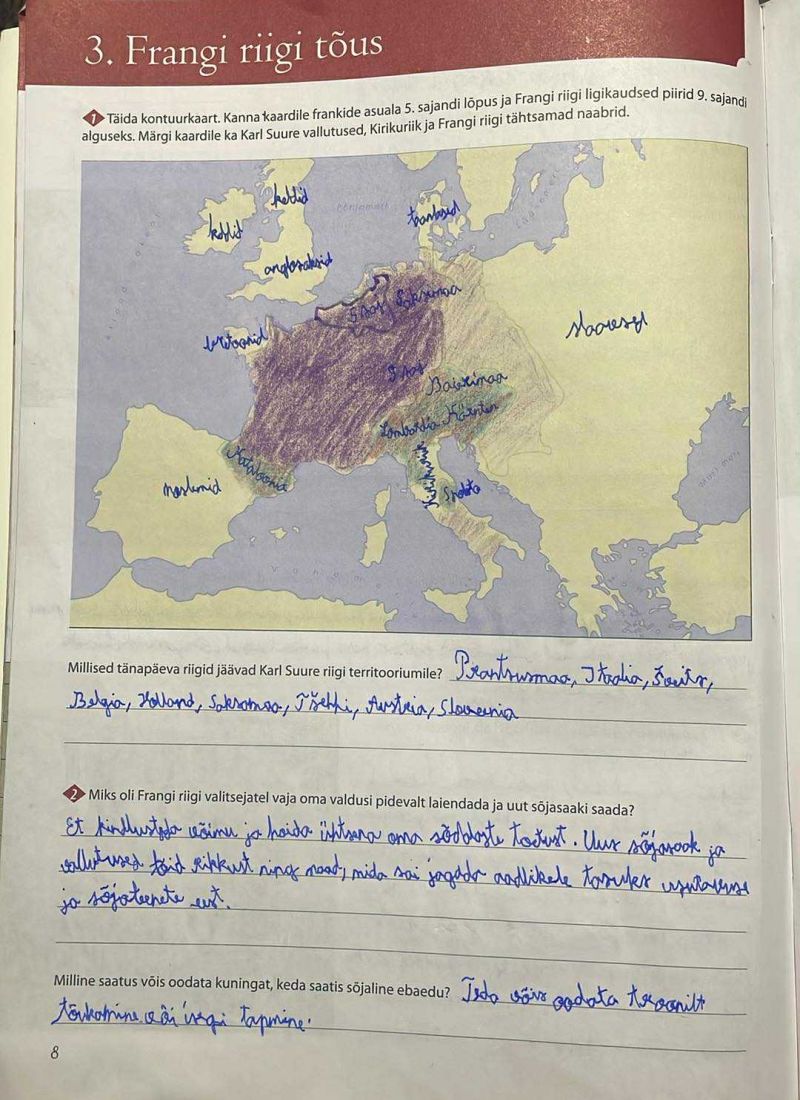 3. Frangi riigi tõus
1 Täida kontuurkaart. Kanna kaardile frankide asuala 5. sajandi lõpus ja Frangi riigi ligikaudsed piirid 9. sajandi
alguseks. Märgi kaardile ka Karl Suure vallutused, Kirikuriik ja Frangi riigi tähtsamad naabrid.
keltid
keltid
Põhjameri
taanlased
Läänemeri
anglosaksid
5 saj Saksimaa
bretoonid
slaavased
9 saj
Baierimaa
Lombardia Kärnten
Kataloonia
Kirikuriik
Spoleto
moslemid
Must meri
Millised tänapäeva riigid jäävad Karl Suure riigi territooriumile? Prantsusmaa, Itaalia, Šveits,
Belgia, Holland, Saksamaa, Tšehhi, Austria, Sloveenia
2 Miks oli Frangi riigi valitsejatel vaja oma valdusi pidevalt laiendada ja uut sõjasaaki saada?
Et kindlustada võimu ja hoida ühtsena oma sõdalaste toetust. Uus sõjasaak ja
vallutused tõid rikkust ning maad, mida sai jagada aadlikele tasuks ustavuse
ja sõjateenete eest.
Milline saatus võis oodata kuningat, keda saatis sõjaline ebaedu? Teda võis oodata troonilt
tõukamine või isegi tapmine.
8